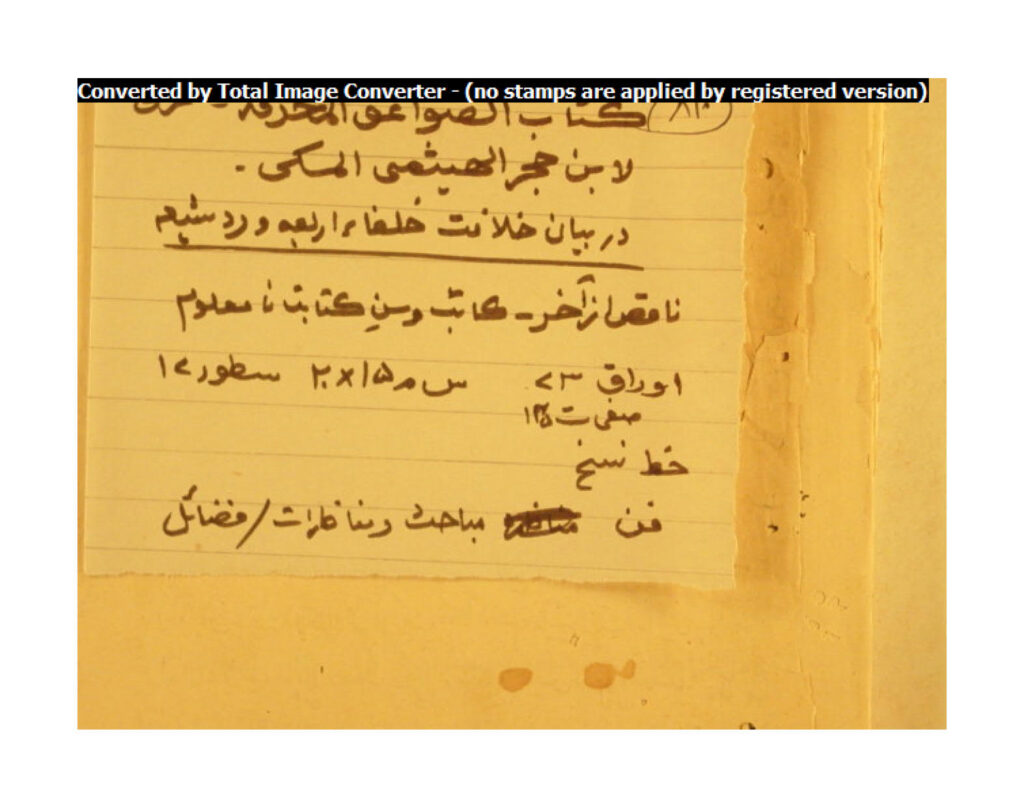 Converted by Total Image Converter - (no stamps are applied by registered version)
كتاب الصواعق المحرقه - عربی
لابن حجر الهيثمی المکی -
در بیان خلافت خلفاء اربعه و رد شیعه
ناقص از آخر - کاتب و سنِ کتابت نامعلوم
اوراق ۷۳ س م ۱۵×۲۰ سطور ۲۱
صفحات
خط نسخ
فن مباحث و مناظرات / فضائل